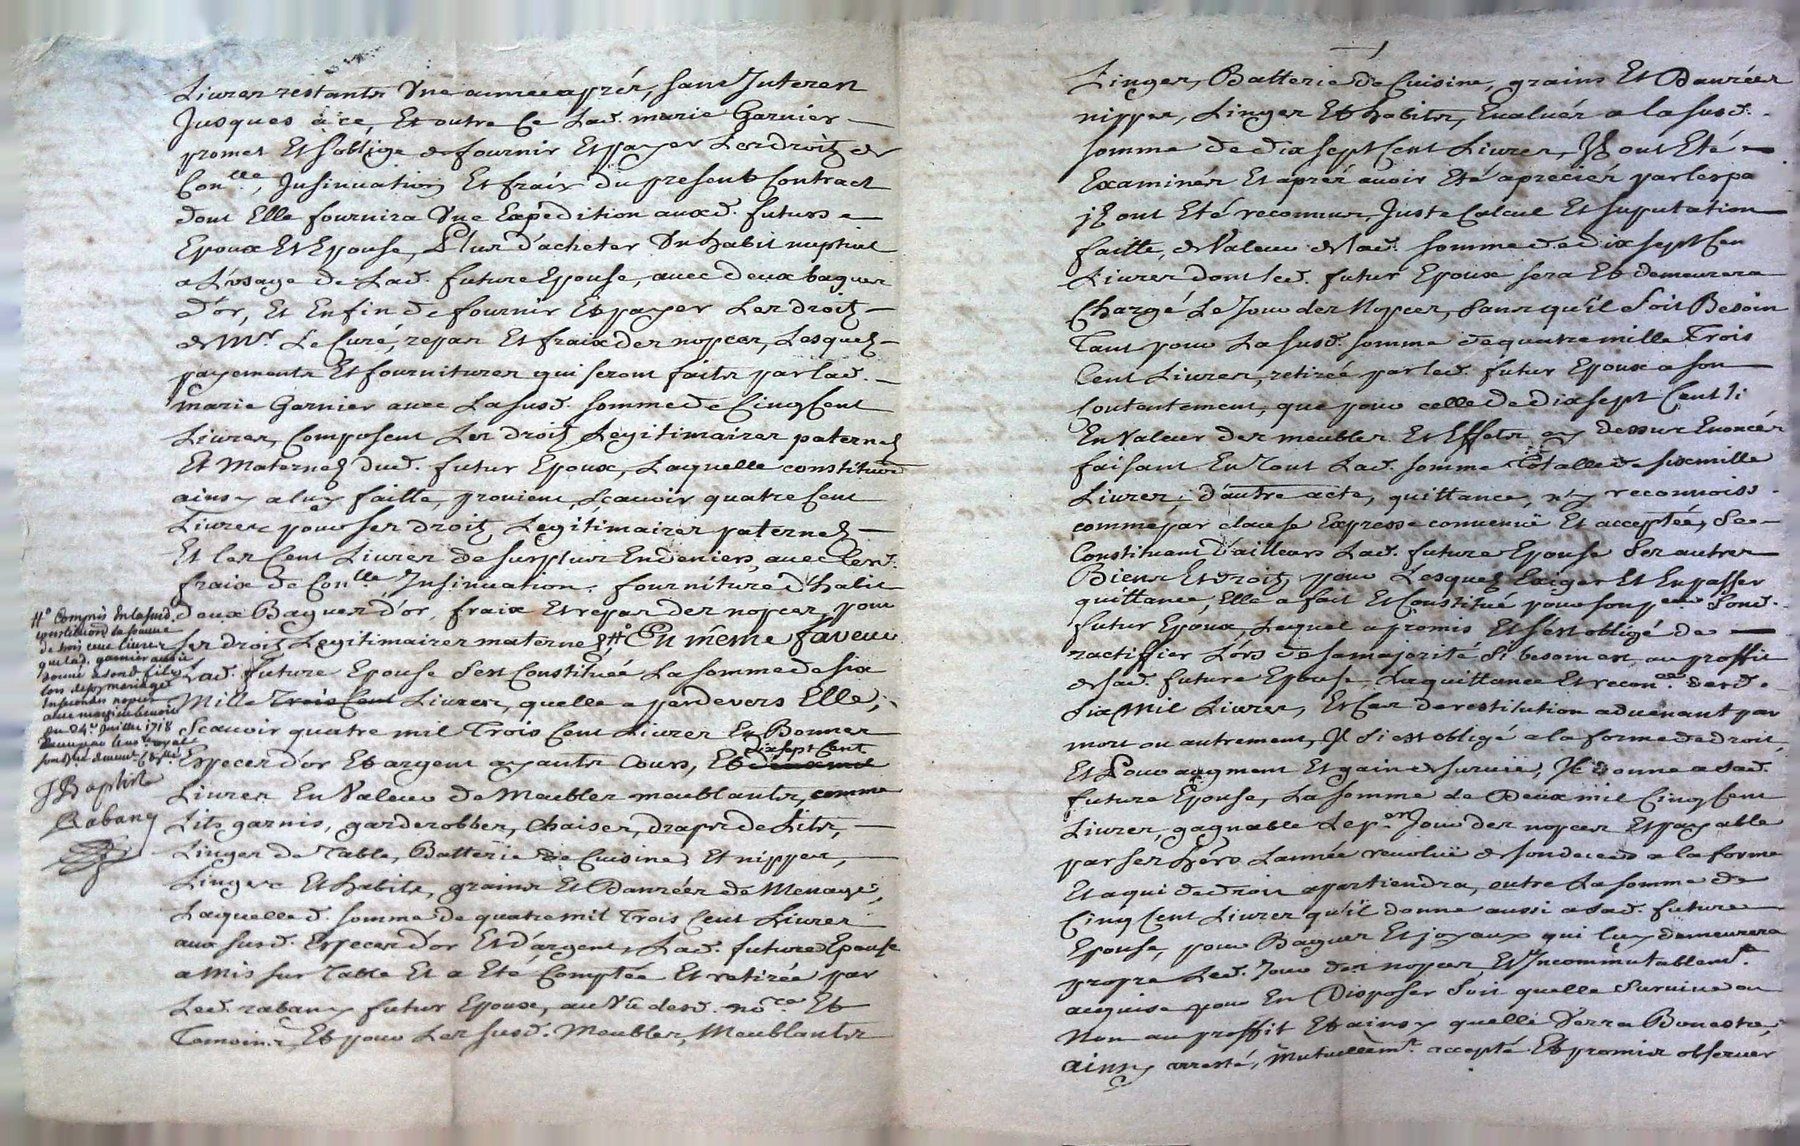 Livres restants Une année aprés, sans Interest
Jusques à ce, Et outre Ce Lad. marie Garnier
promet Et s'oblige de fournir Et payer Les droits de
Con.lle, Insinuation Et frais du present Contract
dont Elle fournira Une Expedition auxd. futurs
Epoux Et Epouse, Plus d'acheter Un habit nuptial
a L'usage de Lad. future Epouse, avec deux bagues
d'or, Et Enfin de fournir Et payer Les droits
de Mr. Le Curé, repas Et fraix des nopces, Lesquels
payements Et fournitures qui seront faits par lad.
marie Garnier avec La susd. somme de Cinq Cent
Livres, Composent Les droits Legitimaires paternels
Et Maternels dud. futur Epoux, Laquelle constitution
ainsy a luy faitte, provient, Scavoir quatre Cent
Livres pour ses droits Legitimaires paternels
Et les Cent Livres de surplus En deniers, avec Lesd.
fraix de Con.lle, Insinuation, fourniture d'habit
deux Bagues d'or, fraix Et repas des nopces, pour
ses droits Legitimaires maternels #° En même faveur
Lad. future Epouse s'est Constituée La somme de six
Mille Trois Cent Livres, quelle a par devers Elle,
Scavoir quatre mil Trois Cent Livres En Bonnes
Especes d'or Et argent ayants Cours, Et deux mil
dix sept Cent
Livres En Valeur de Meubles meublants, comme
Lits garnis, garderobbes, Chaises, draps de Lits,
Linges de Table, Batterie de Cuisine, Et nippes,
Linges Et habits, grains Et Danrées de Menage;
Laquelle d. somme de quatre mil Trois Cent Livres
aux susd. Especes d'or Et d'argent, Lad. future Epouse
a Mis sur Table Et a Eté Comptée Et retirée par
Led. rabany futur Epoux, au Vû desd. no.re Et
Temoins, Et pour Les susd. Meubles, Meublants
#° Compris En la susd.
constitution la somme
de trois cent livres
que lad. garnier avoit
donné a sond. fils
lors de son mariage
du 24e Juillet 1718
J Baptiste
Rabany
Linges, Batterie de Cuisine, grains Et Danrées
nippes, Linges Et habits, Evalués a la susd.
somme de dix sept Cent Livres, Ils ont Eté
Examinés Et aprés avoir Eté apreciés par les pa
ils ont Eté reconnus, Juste Calcul Et suputation
faitte, de Valeur de lad. somme de dix sept Cen
Livres dont led. futur Epoux sera Et demeurera
Chargé Le Jour des Nopces, sans qu'il soit Besoin
Tant pour La susd. somme de quatre mille Trois
Cent Livres, retirée par led. futur Epoux a son
Contentement, que pour celle de dix sept Cent li
En Valeur des meubles Et Effets cy dessus Enoncés
faisant En Tout Lad. somme Totalle de six mille
Livres, d'autre acte, quittance, ny reconnoiss.
comme par clause Expresse convenuë Et acceptée, Se
Constituant d'ailleurs Lad. future Epouse ses autres
Biens Et droits pour Lesquels Exiger Et En passer
quittance, Elle a fait Et Constitué pour son p.eur sond.
futur Epoux, Lequel a promis Et s'est obligé de
ractiffier Lors de sa majorité si besoin est, au proffit
de sad. future Epouse, La quittance Et recon.ce desd.
six Mil Livres, Et Cas de restitution advenant par
mort ou autrement, Il s'i est obligé a la forme de droit,
Et Pour augment Et gain de survie, Il donne a sad.
future Epouse, La somme de Deux mil Cinq Cent
Livres, gagnable Le p.er Jour des nopces Et payable
par ses hérs L'année revoluë de son deces a la forme
Et a qui de droit apartiendra, outre La somme de
Cinq Cent Livres qu'il donne aussi a sad. future
Epouse, pour Bagues Et joyaux qui luy demeurera
propre Led. Jour des nopces, Et Incommutablem.t
acquise pour En Disposer soit quelle survive ou
Non au proffit Et ainsy quelle Verra Bon estre,
ainsy arresté, Mutuellem.t accepté Et promis observer